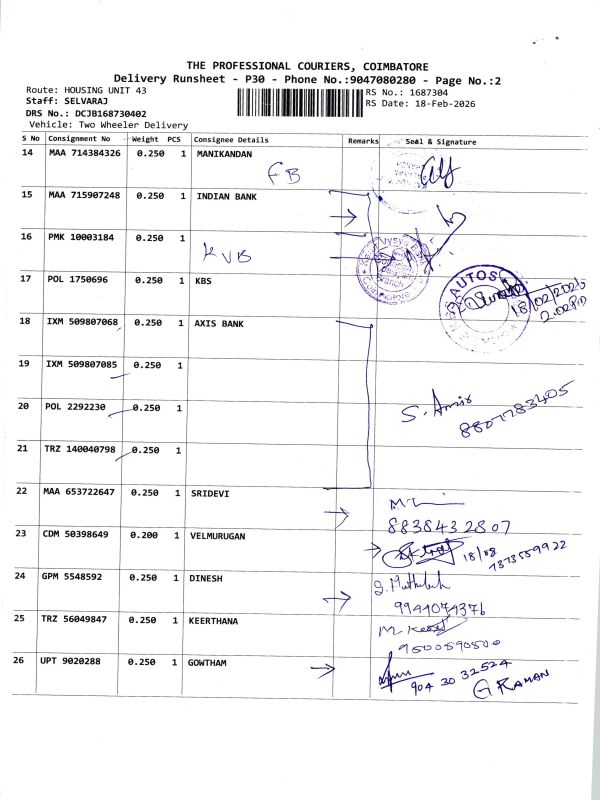 THE PROFESSIONAL COURIERS, COIMBATORE
Delivery Runsheet - P30 - Phone No.:9047080280 - Page No.:2
Route: HOUSING UNIT 43
RS No.: 1687304
Staff: SELVARAJ
RS Date: 18-Feb-2026
DRS No.: DCJB168730402
Vehicle: Two Wheeler Delivery
S No Consignment No Weight PCS Consignee Details Remarks Seal & Signature
14 MAA 714384326 0.250 1 MANIKANDAN
FB
15 MAA 715907248 0.250 1 INDIAN BANK
16 PMK 10003184 0.250 1
KVB
17 POL 1750696 0.250 1 KBS
AUTOS
18/02/2026
2.02PM
18 IXM 509807068 0.250 1 AXIS BANK
19 IXM 509807085 0.250 1
20 POL 2292230 0.250 1
S. Amir
8807783405
21 TRZ 140040798 0.250 1
22 MAA 653722647 0.250 1 SRIDEVI
8838432807
23 CDM 50398649 0.200 1 VELMURUGAN
18/08
7373559922
24 GPM 5548592 0.250 1 DINESH
9941074376
25 TRZ 56049847 0.250 1 KEERTHANA
9500590500
26 UPT 9020288 0.250 1 GOWTHAM
904 30 32524
G RAMAN